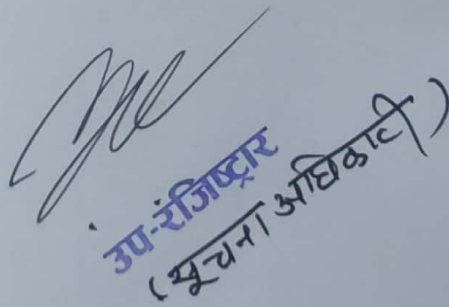 उप-रंजिष्ट्रार
(सूचना अधिकारी)